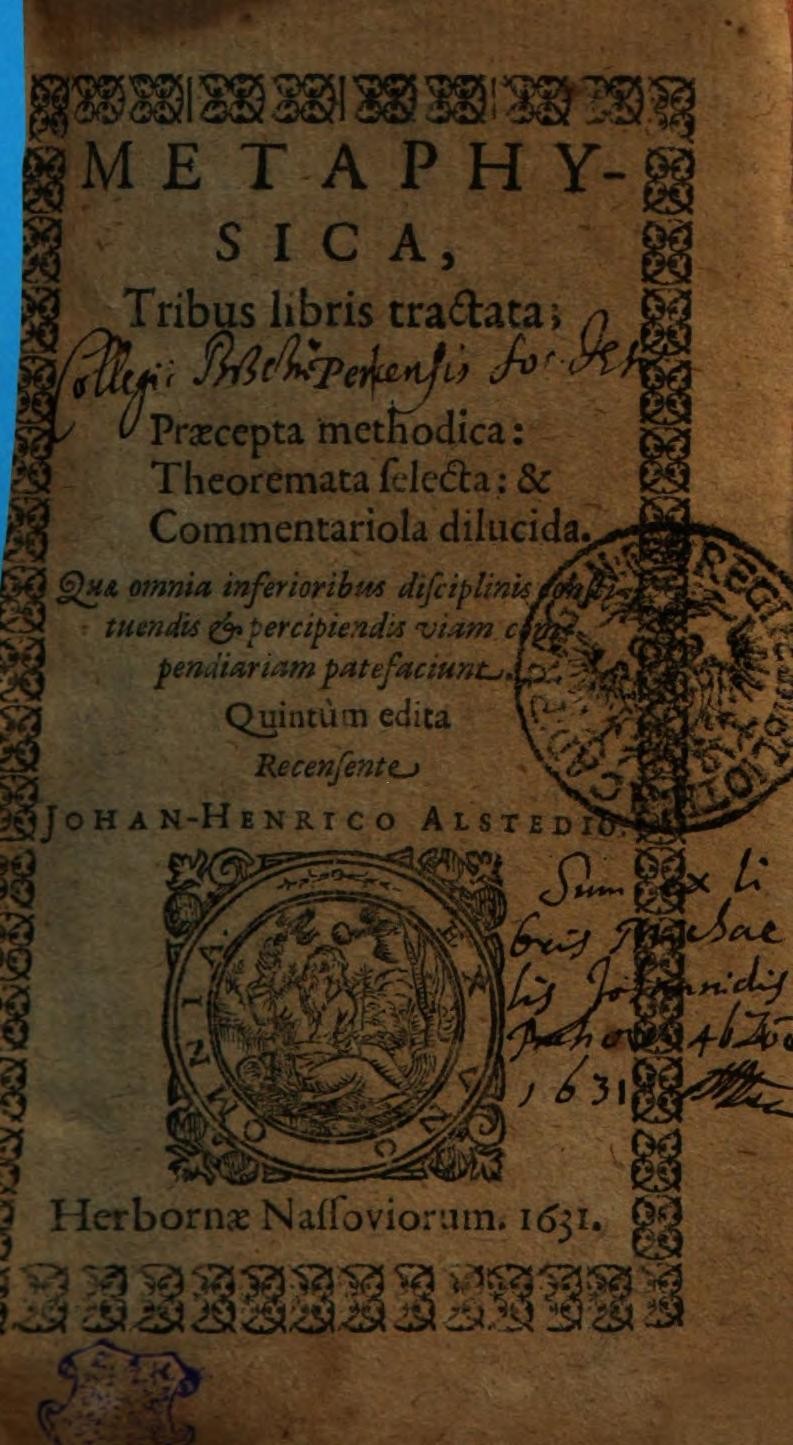 METAPHY-
SICA,
Tribus libris tractata;
Collegii
Præcepta methodica:
Theoremata ſelecta: &
Commentariola dilucida.
Quæ omnia inferioribus diſciplinis
tuendis & percipiendis viam
pendiariam patefaciunt.
Quintùm edita
Recenſente
JOHAN-HENRICO ALSTEDIO.
OMNIA
Sum ex li
bris
lis
1631
Herbornæ Naſſoviorum. 1631.